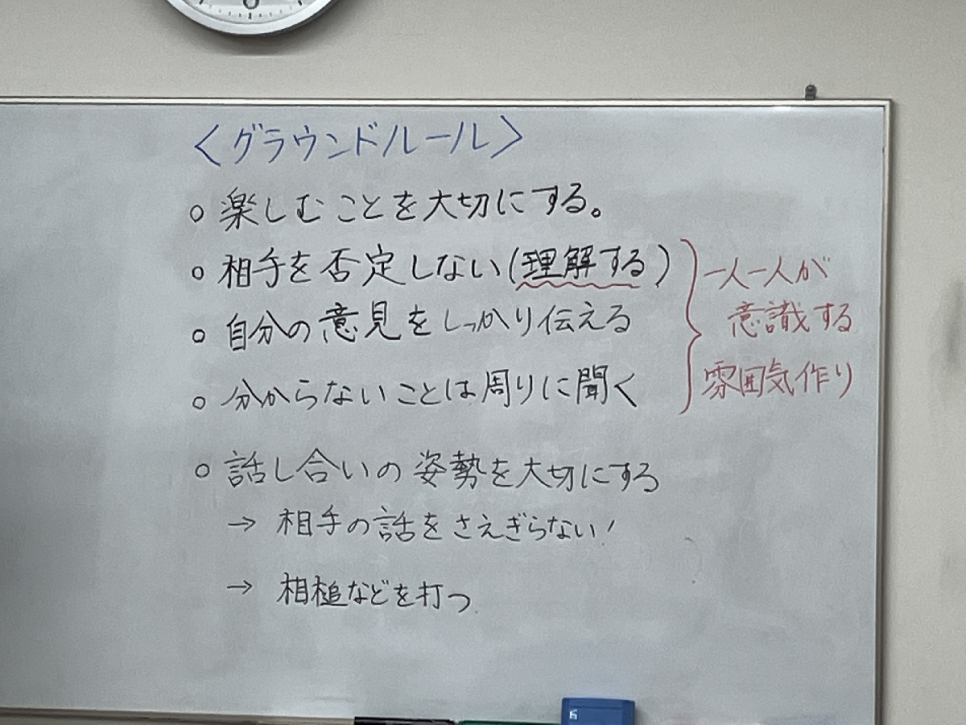 〈グラウンドルール〉
○ 楽しむことを大切にする。
○ 相手を否定しない(理解する)
○ 自分の意見をしっかり伝える
○ 分からないことは周りに聞く
一人一人が
意識する
雰囲気作り
○ 話し合いの姿勢を大切にする
→ 相手の話をさえぎらない!
→ 相槌などを打つ